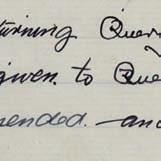 turning Quer
given to Que
ended. and